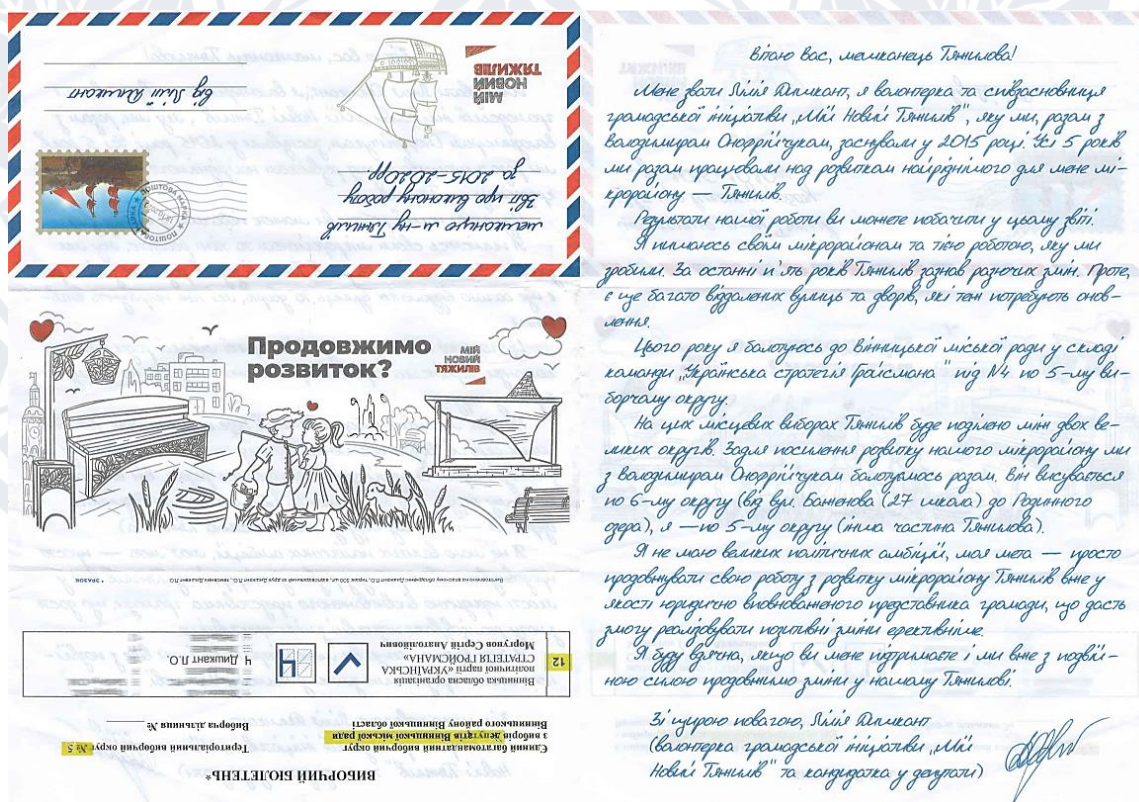 МІЙ
НОВИЙ
ТЯЖИЛІВ
від Лілії Дишкант
мешканцю м-ну Тяжилів
Звіт про виконану роботу
за 2015-2020рр
ПОШТОВА МАРКА
Продовжимо
розвиток?
МІЙ
НОВИЙ
ТЯЖИЛІВ
ВИБОРЧИЙ БЮЛЕТЕНЬ*
Єдиний багатомандатний виборчий округ
з виборів депутатів Вінницької міської ради
Вінницького району Вінницької області
Територіальний виборчий округ № 5
Виборча дільниця №
12
Вінницька обласна організація
політичної партії «УКРАЇНСЬКА
СТРАТЕГІЯ ГРОЙСМАНА»
Моргунов Сергій Анатолійович
4
4 Дишкант Л.О.
* ЗРАЗОК
Вітаю Вас, мешканець Тяжилова!
Мене звати Лілія Дишкант, я волонтерка та співзасновниця
громадської ініціативи „Мій Новий Тяжилів", яку ми, разом з
Володимиром Онофрійчуком, заснували у 2015 році. Усі 5 років
ми разом працювали над розвитком найріднішого для мене мі-
крорайону — Тяжилів.
Результати нашої роботи ви можете побачити у цьому звіті.
Я пишаюсь своїм мікрорайоном та тією роботою, яку ми
зробили. За останні п'ять років Тяжилів зазнав разючих змін. Проте,
є ще багато віддалених вулиць та дворів, які теж потребують онов-
лення.
Цього року я балотуюсь до Вінницької міської ради у складі
команди „Українська стратегія Гройсмана" під №4 по 5-му ви-
борчому округу.
На цих місцевих виборах Тяжилів буде поділено між двох ве-
ликих округів. Задля посилення розвитку нашого мікрорайону ми
з Володимиром Онофрійчуком балотуємось разом. Він висувається
по 6-му округу (від вул. Баженова (27 школа) до Родинного
джерела), я — по 5-му округу (інша частина Тяжилова).
Я не маю великих політичних амбіцій, моя мета — просто
продовжувати свою роботу з розвитку мікрорайону Тяжилів вже у
якості юридично вповноваженого представника громади, що дасть
змогу реалізовувати позитивні зміни ефективніше.
Я буду вдячна, якщо ви мене підтримаєте і ми вже з подвій-
ною силою продовжимо зміни у нашому Тяжилові.
Зі щирою повагою, Лілія Дишкант
(волонтерка громадської ініціативи „Мій
Новий Тяжилів" та кандидатка у депутати)